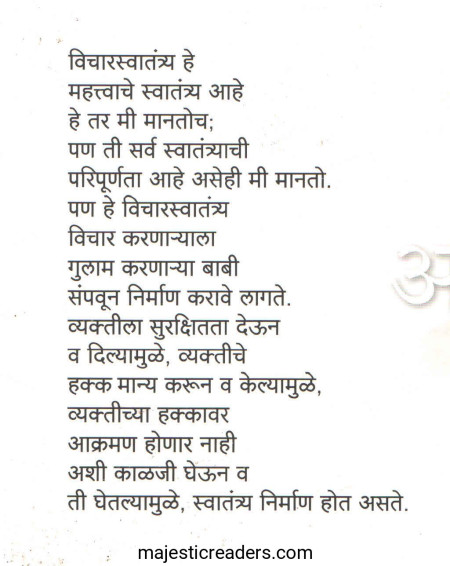 विचारस्वातंत्र्य हे
महत्त्वाचे स्वातंत्र्य आहे
हे तर मी मानतोच;
पण ती सर्व स्वातंत्र्याची
परिपूर्णता आहे असेही मी मानतो.
पण हे विचारस्वातंत्र्य
विचार करणाऱ्याला
गुलाम करणाऱ्या बाबी
संपवून निर्माण करावे लागते.
व्यक्तीला सुरक्षितता देऊन
व दिल्यामुळे, व्यक्तीचे
हक्क मान्य करून व केल्यामुळे,
व्यक्तीच्या हक्कावर
आक्रमण होणार नाही
अशी काळजी घेऊन व
ती घेतल्यामुळे, स्वातंत्र्य निर्माण होत असते.
majesticreaders.com